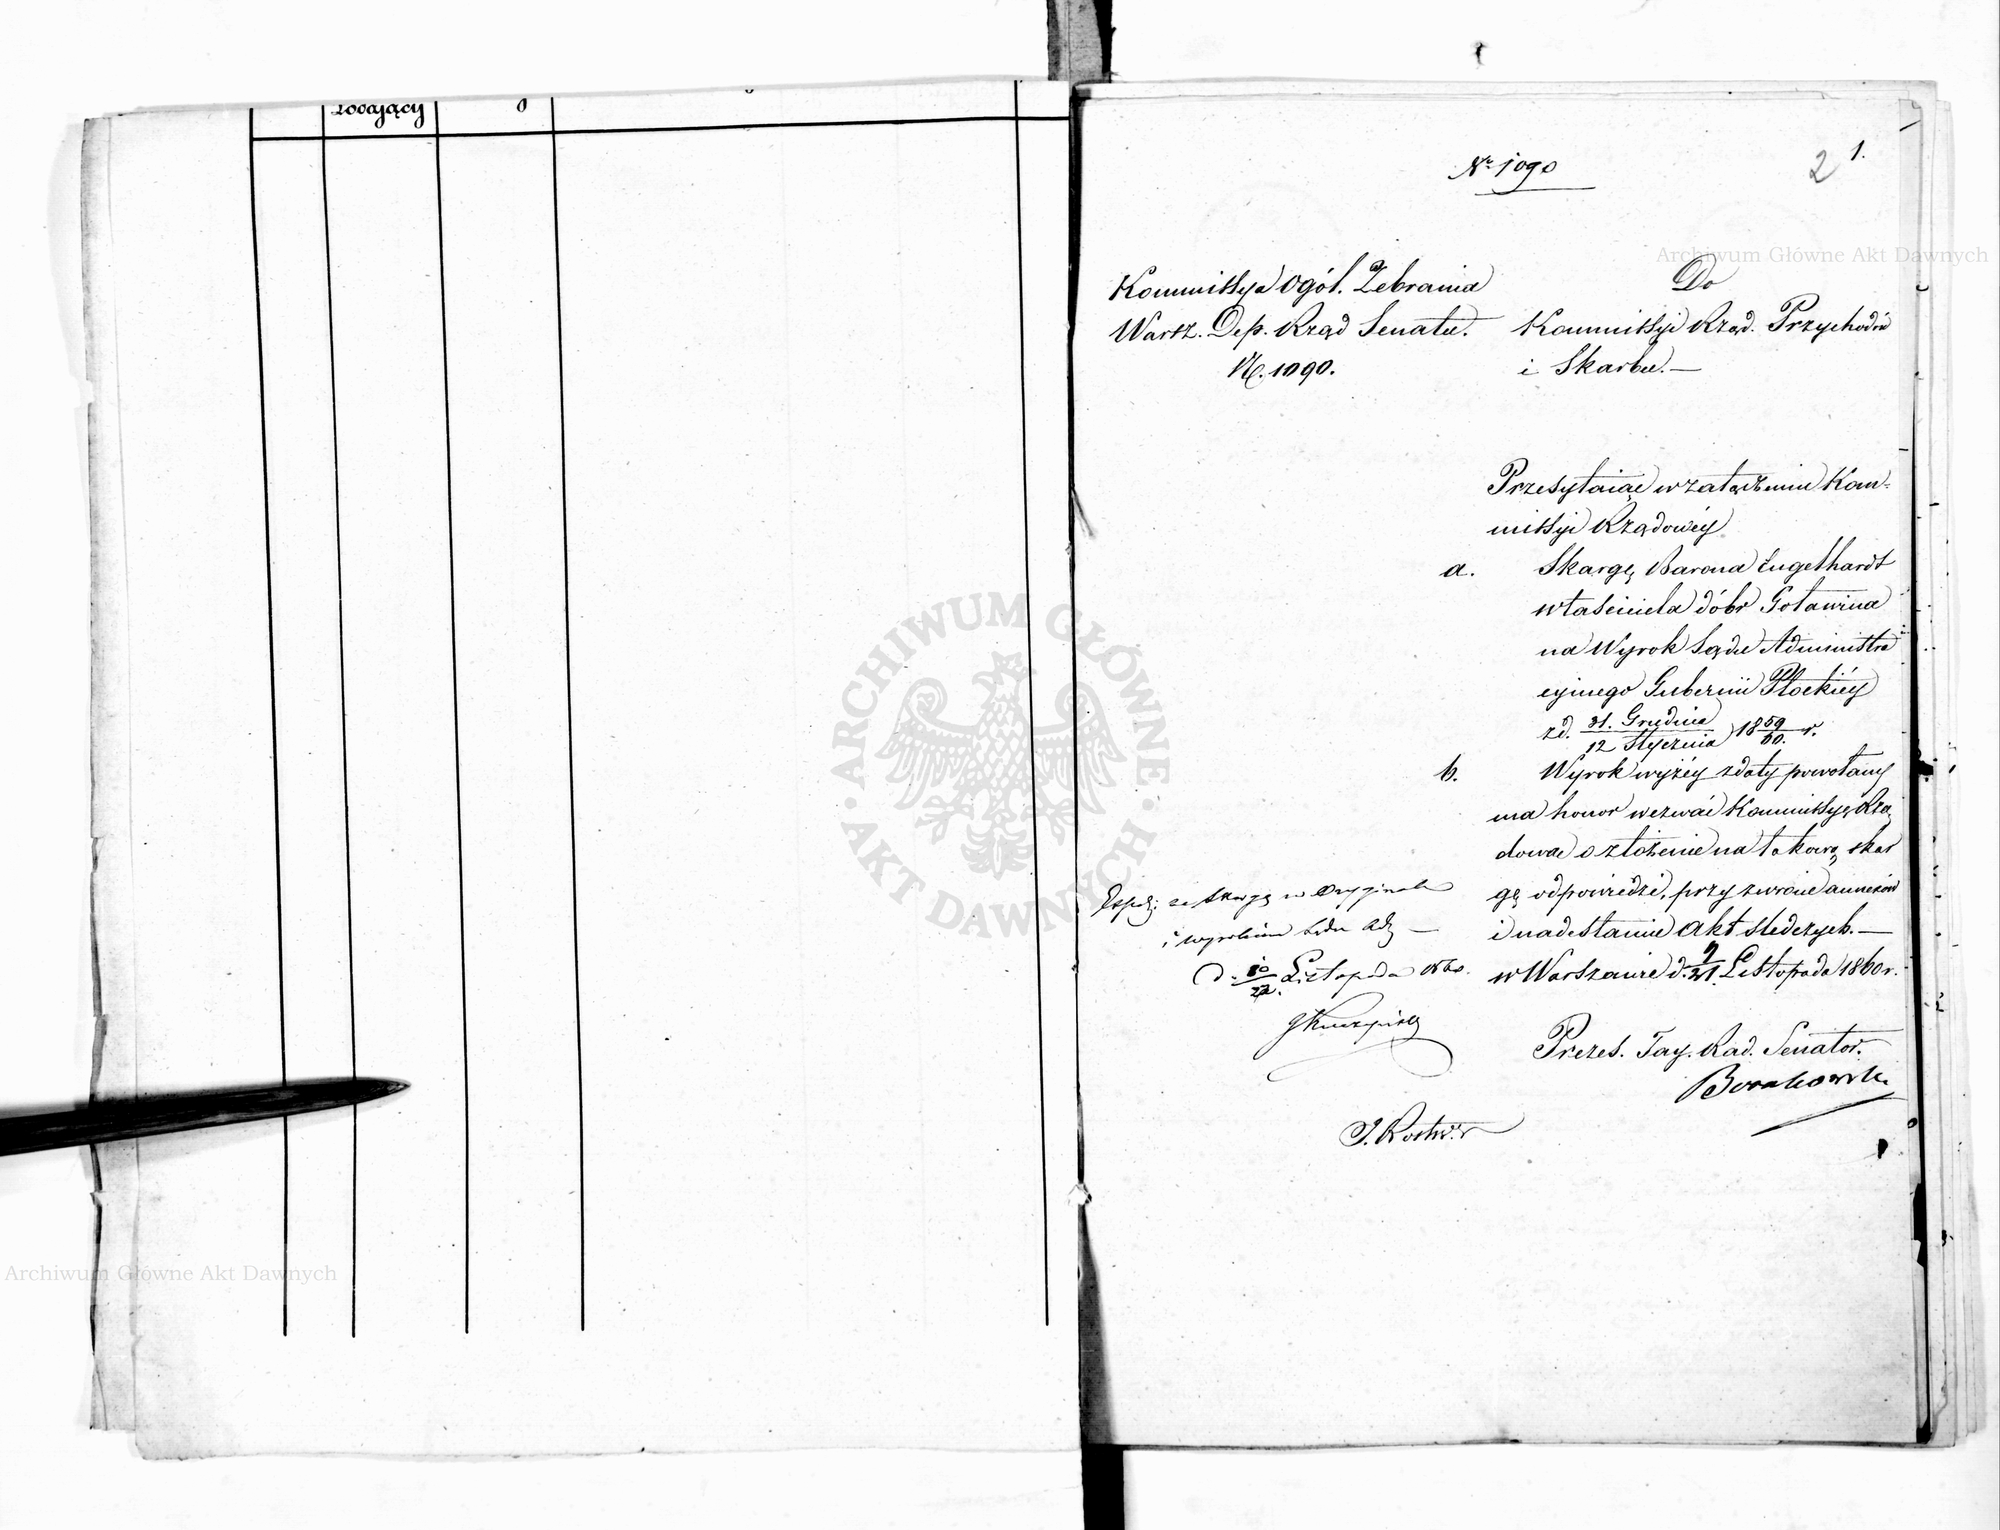 rodający
Nr 1090
2 1.
Kommissya Ogól. Zebrania
Warsz. Dep. Rząd Senatu.
N. 1090.
Do
Kommissyi Rząd. Przychodów
i Skarbu.—
Przesyłaiąc w załączeniu Kom-
missyi Rządowéy
a. Skargę Barona Engelhardt
właściciela dóbr Goławina
na Wyrok Sądu Administra
cyjnego Gubernii Płockiéy
z d. 31. Grudnia / 12 Stycznia 1859/60. r.
b. Wyrok wyżéy z daty powołany
ma honor wezwać Kommissyę Rzą
dową o złożenie na takową skar
gę odpowiedzi, przy zwrocie annexów
i nadesłanie Akt śledczych.—
w Warszawie d. 9/21. Listopada 1860 r.
Prezes. Tay. Rad. Senator.
ze skargą w Oryginale
i wyrokiem Sądu Adm —
d. 10/22. Listopada 1860.
ARCHIWUM GŁÓWNE
AKT DAWNYCH
Archiwum Główne Akt Dawnych
Archiwum Główne Akt Dawnych